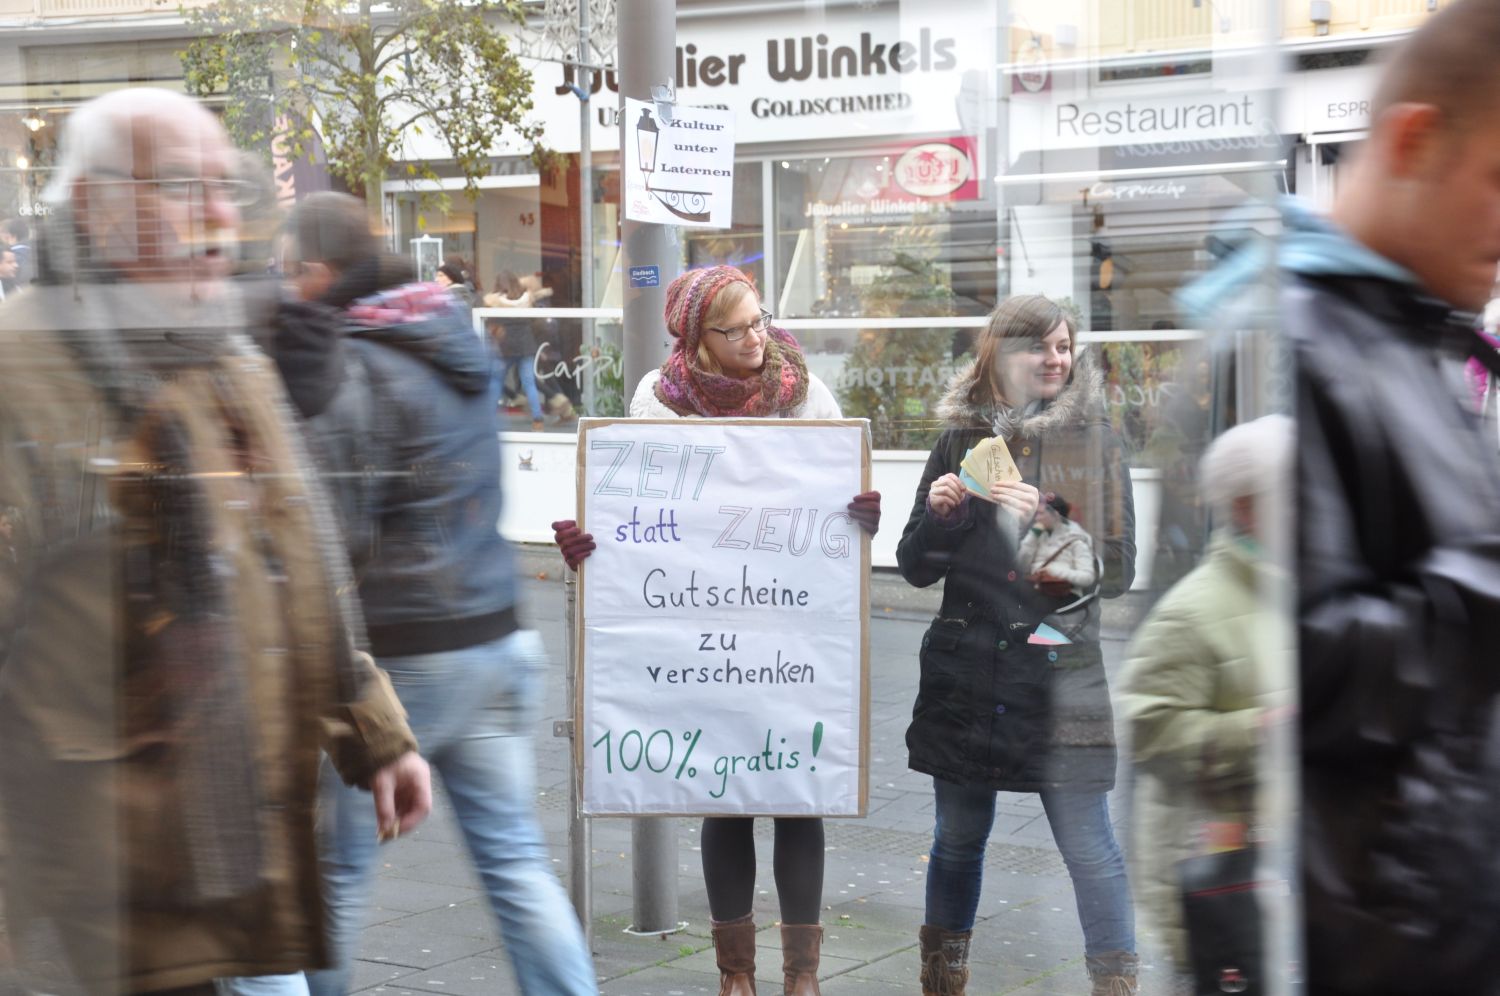 Juwelier Winkels
GOLDSCHMIED
Kultur
unter
Laternen
Restaurant
ESPR
Cappuccino
Juwelier Winkels
45
Cappu
ZEIT
statt ZEUG
Gutscheine
zu
verschenken
100% gratis!
Gutschein